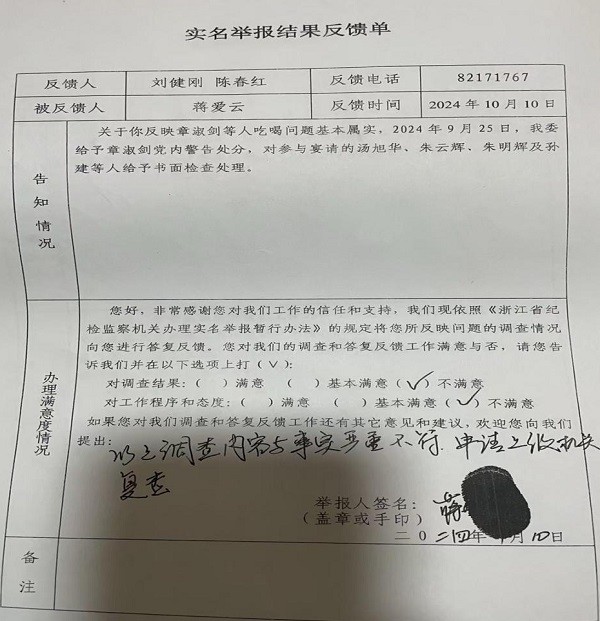 实名举报结果反馈单
反馈人 刘健刚 陈春红 反馈电话 82171767
被反馈人 蒋爱云 反馈时间 2024年10月10日
告知情况
关于你反映章淑剑等人吃喝问题基本属实,2024年9月25日,我委
给予章淑剑党内警告处分,对参与宴请的汤旭华、朱云辉、朱明辉及孙
建等人给予书面检查处理。
办理满意度情况
您好,非常感谢您对我们工作的信任和支持,我们现依照《浙江省纪
检监察机关办理实名举报暂行办法》的规定将您所反映问题的调查情况
向您进行答复反馈。您对我们的调查和答复反馈工作满意与否,请您告
诉我们并在以下选项上打(√):
对调查结果:( )满意 ( )基本满意(√)不满意
对工作程序和态度:( )满意 ( )基本满意(√)不满意
如果您对我们调查和答复反馈工作还有其它意见和建议,欢迎您向我们
提出:以上调查内容与事实严重不符.申请上级机关
复查
举报人签名:蒋
(盖章或手印)
二0二四年 月10日
备注